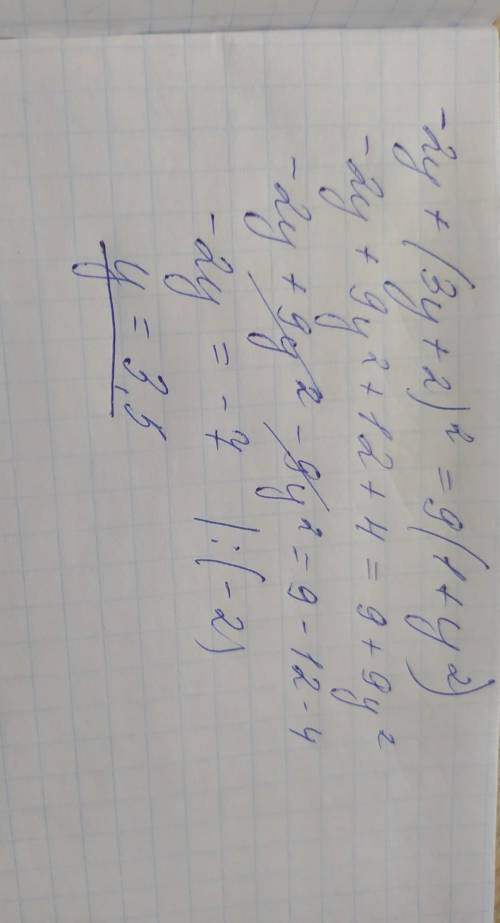 -2y + (3y + 2)² = 9(1 + y²)
-2y + 9y² + 12 + 4 = 9 + 9y²
-2y + 9y² - 9y² = 9 - 12 - 4
-2y = -7 |:(-2)
y = 3,5